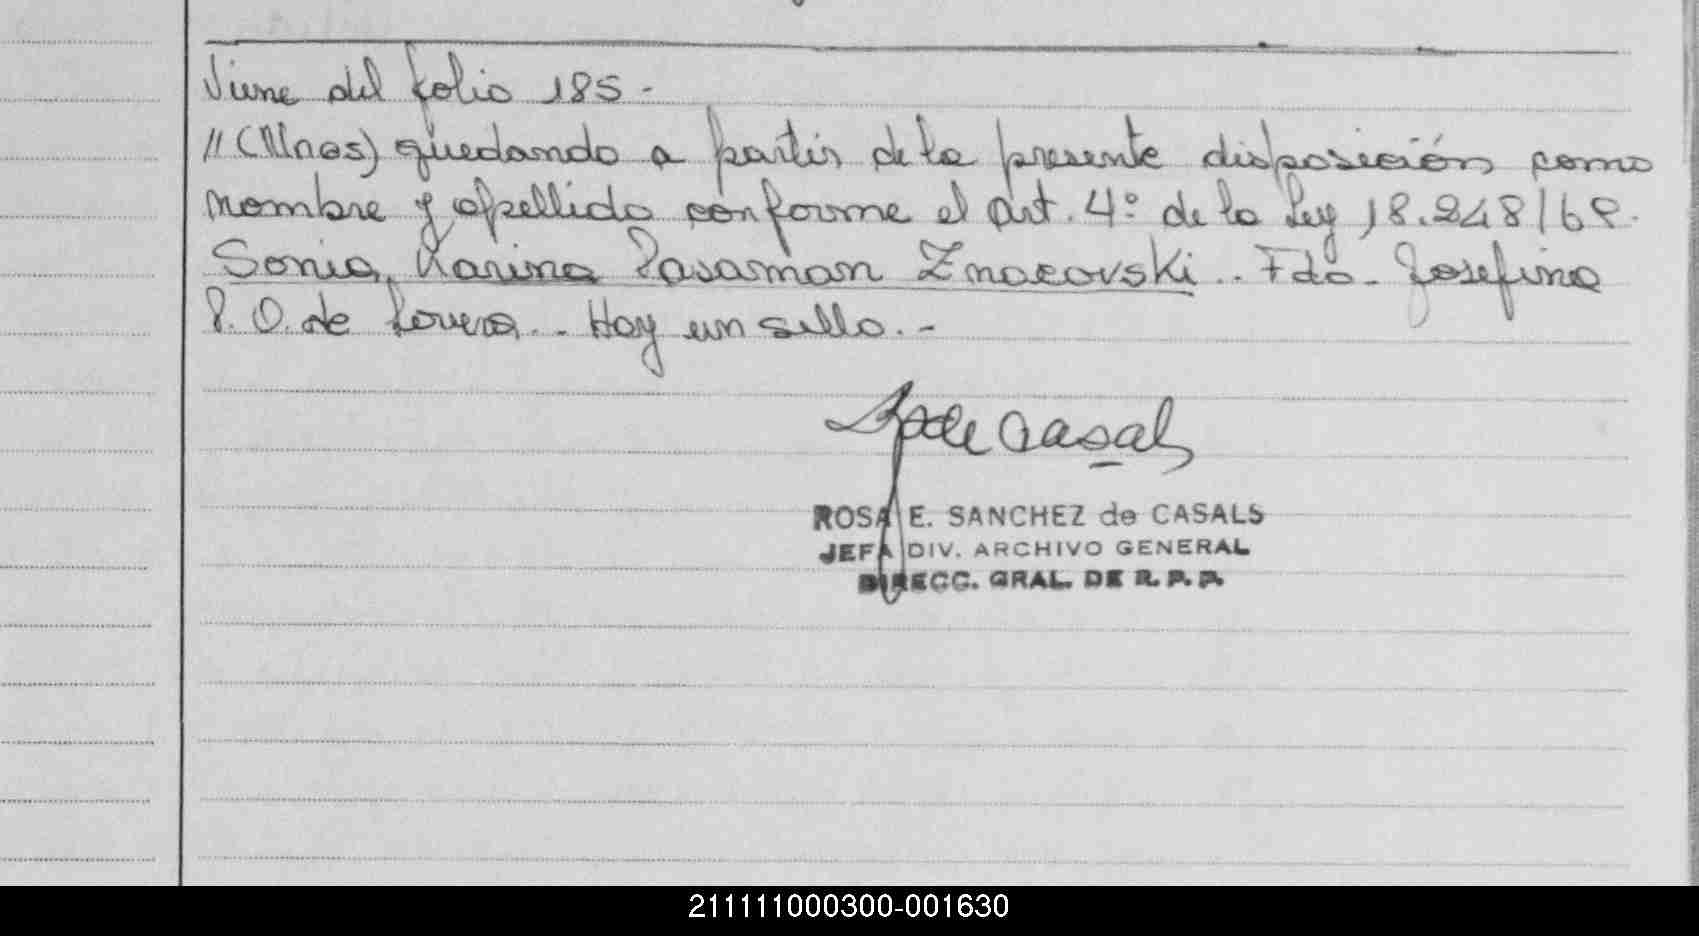 Viene del folio 185.-
//(Unos) quedando a partir de la presente disposición como
nombre y apellido conforme el art. 4º de la Ley 18.248/69.
Sonia Karina Pasaman Znacovski.. Fdo.- Josefina
P. O. de Lovera.. Hay un sello.-
de Casals
ROSA E. SANCHEZ de CASALS
JEFA DIV. ARCHIVO GENERAL
DIRECC. GRAL. DE R. P. P.
211111000300-001630